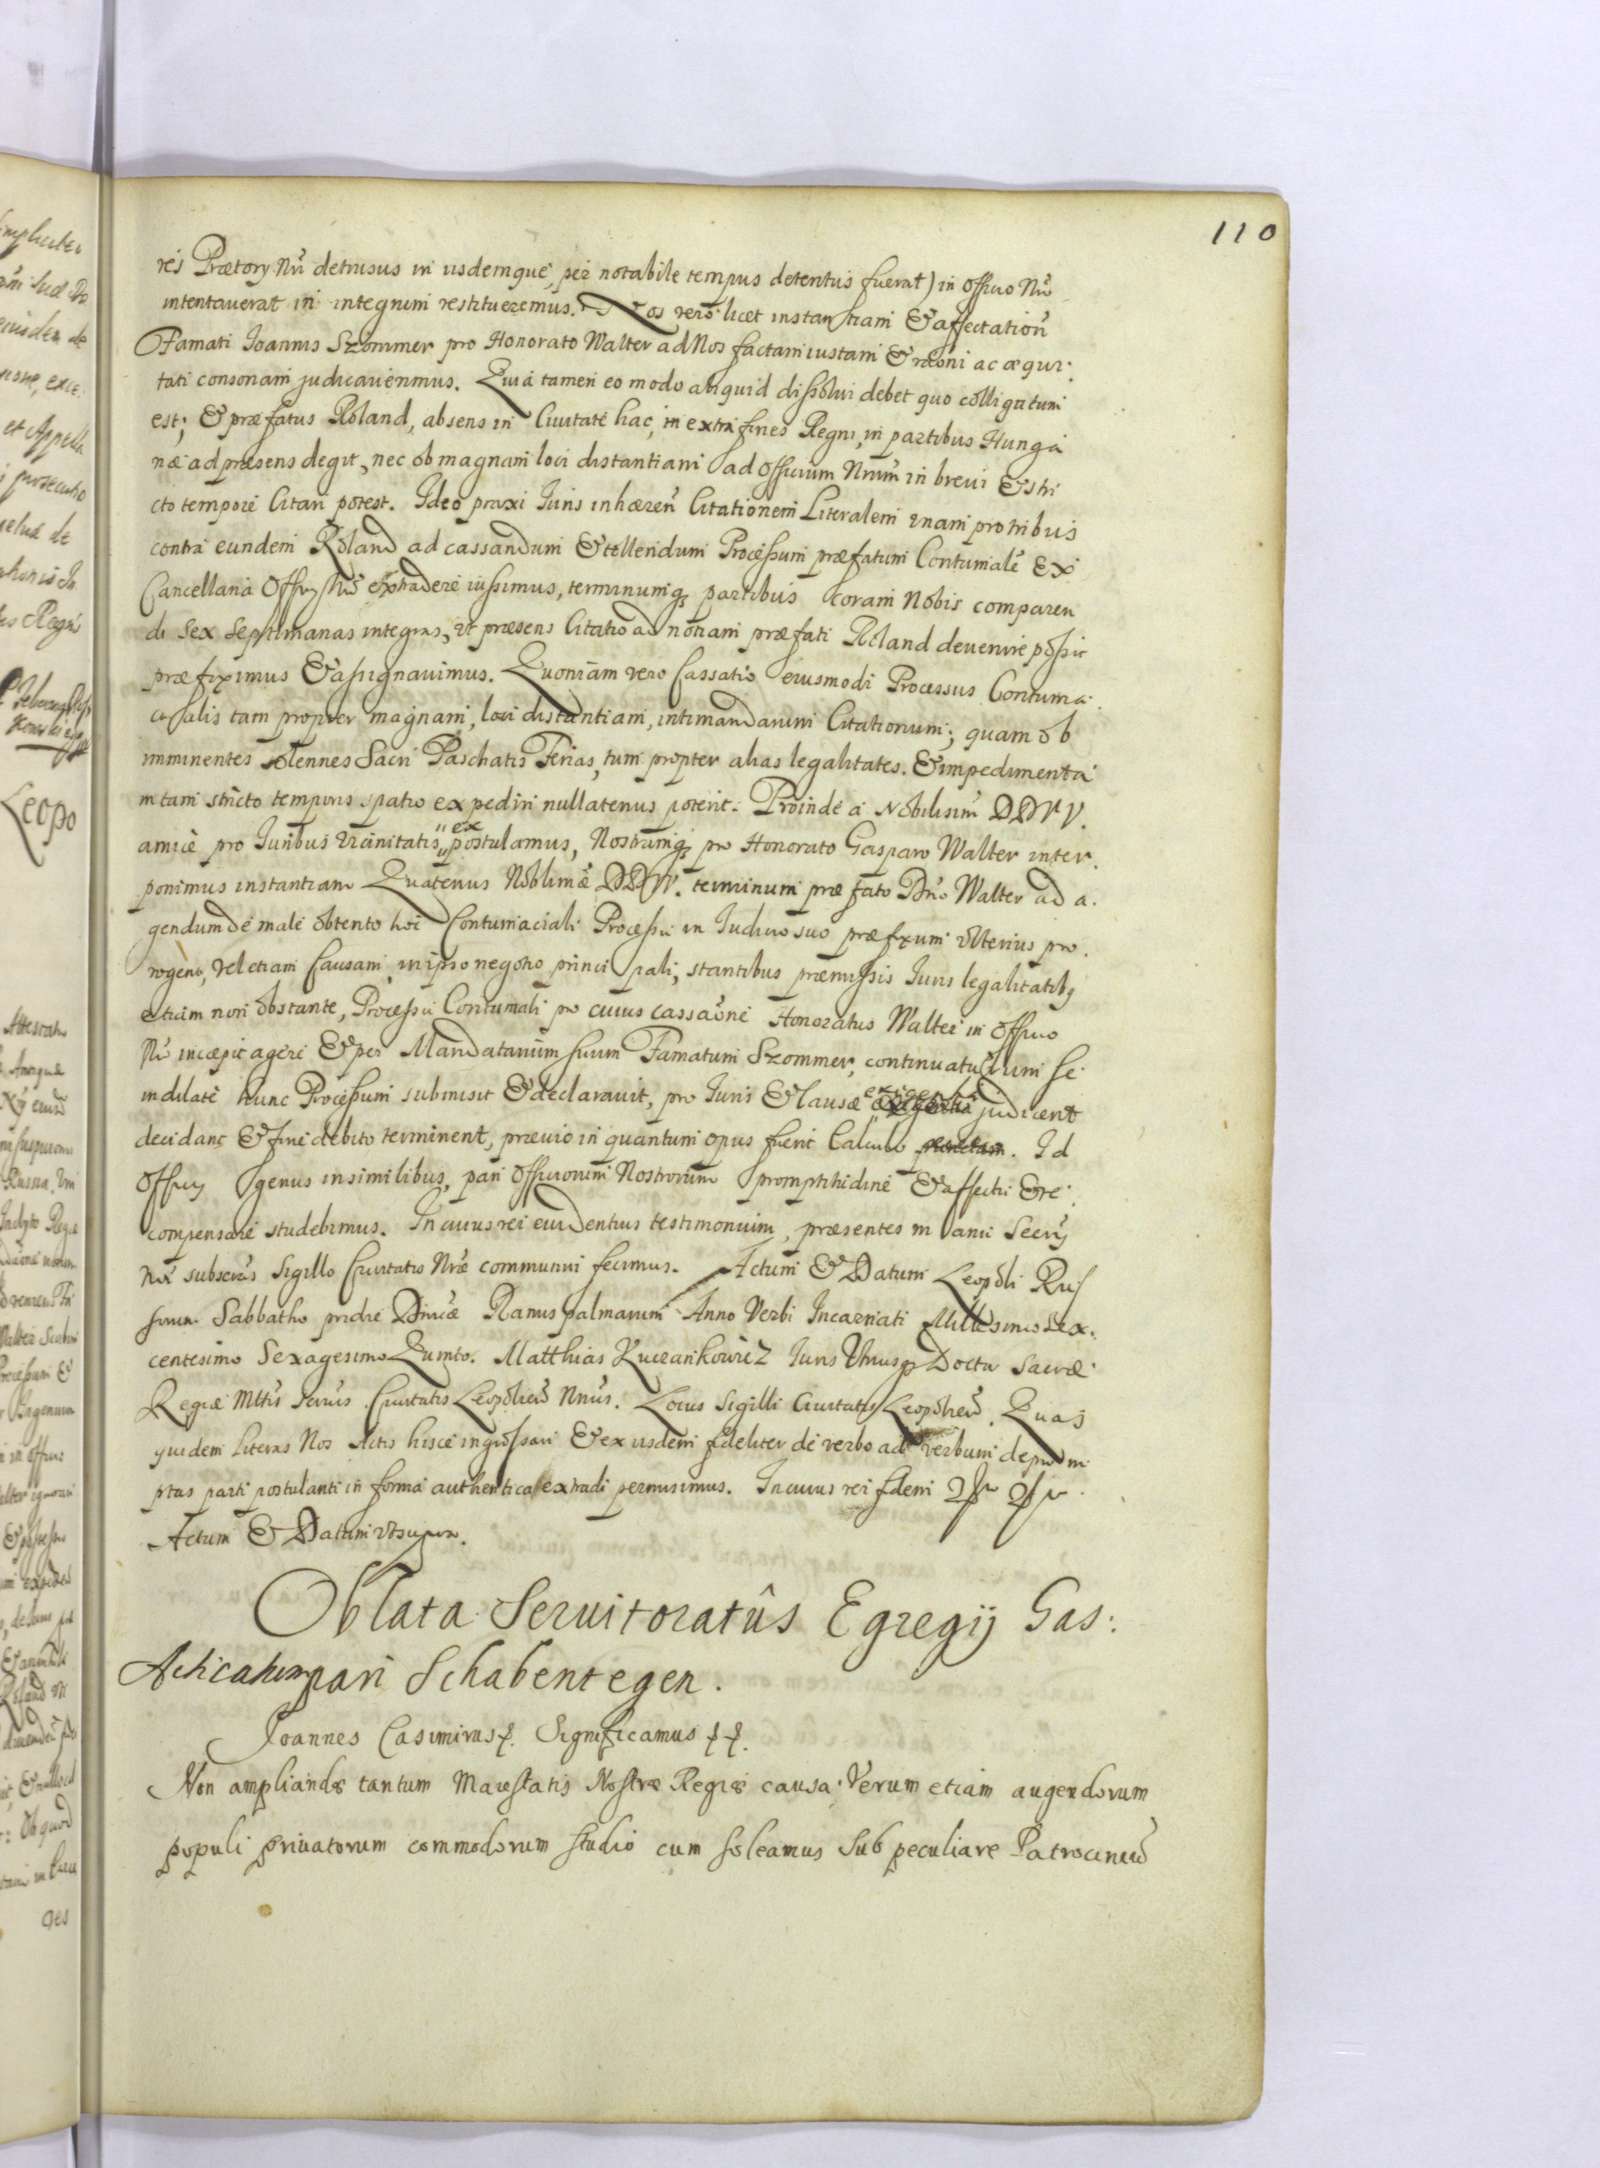 110
res Prætorÿ Nrĩ detrusus in iisdemque, per notabile tempus detentus fuerat) in Officio Nrõ
intentauerat in integrum restitueremus. Nos vero licet instantiam & affectationẽ
Famati Ioannis Szommer pro Honorato Walter ad Nos factam iustam & raõni ac æqui-
tati consonam judicauerimus. Quia tamen eo modo aliquid dissolui debet quo colligatum
est; & præfatus Roland, absens in Ciuitate hac, in extra fines Regni, in partibus Hunga
riæ ad præsens degit, nec ob magnam loci distantiam ad Officium Nrum in breui & stri
cto tempore Citari potest. Ideo praxi Iuris inhæren̄ Citationem Literalem vnam pro tribus
contra eundem Roland ad cassandum & tollendum Processum præfatum Contumalẽ Ex
Cancellaria Officÿ Nrĩ extradere iussimus, terminumq; partibus coram Nobis comparen
di sex septimanas integras, vt præsens Citatio ad notiam præfati Roland deuenire possit
præfiximus & assignauimus. Quoniam vero Cassatio eiusmodi Processus Contuma-
cialis tam propter magnam, loci distantiam, intimandarum Citationum; quam ob
imminentes solennes Sacri Paschatis Ferias, tum propter alias legalitates. & impedimenta
in tam stricto temporis spatio expediri nullatenus poterit. Proinde a Nobilisim̃ DDVV.
amice pro Iuribus vicinitatis ex postulamus, Nostramq; pro Honorato Gasparo Walter inter-
ponimus instantiam Quatenus Noblimæ DDVV. terminum præfato Dño Walter ad a-
gendum de male obtento hoc Contumaciali Processu in Iudicio suo præfixum vlterius pro-
rogent, vel etiam Causam in ipso negotio principali, stantibus præmissis Iuris legalitatibq
etiam non obstante, Processu Contumali pro cuius cassaõne Honoratus Walter in Officio
Nrõ incœpit agere & per Mandatarium suum Famatum Szommer, continuaturum se
indilate hunc Processum submisit & declarauit, pro Iuris & Causæ exigentia judicent
decidant & fine debito terminent, præuio in quantum opus fuerit Calculo. Id
Officÿ genus in similibus, pari Officiorum Nostrorum promptitudine & affectu & re-
compensare studebimus. In cuius rei euidentius testimonium, præsentes manu Secrÿ
Nrĩ subscris Sigillo Ciuitatis Nræ communi fecimus. Actum & Datum Leopoli Rus
sorum Sabbatho pridie Dnicæ Ramis palmarum Anno Verbi Incarnati Millesimo Sex-
centesimo Sexagesimo Quinto. Matthias Kuczankowicz Iuris Vtriusq Doctor Sacræ
Regiæ Mttis Secrius Ciuitatis Leopolien̄ Nrius. Locus Sigilli Ciuitatis Leopolien̄. Quas
quidem Literas Nos Actis hisce ingrossari & ex iisdem fideliter de verbo ad verbum deprom
ptas parti postulanti in forma authentica extradi permisimus. In cuius rei fidem
Actum & Datum vt supra.
Oblata Seruitoratûs Egregij Gas:
Acticatum pari Schabentegen.
Joannes Casimirus. Significamus
Non ampliandæ tantum Maiestatis Nostræ Regiæ causa. Verum etiam augendorum
populi priuatorum commodorum studio cum soleamus sub peculiare Patrociniũ